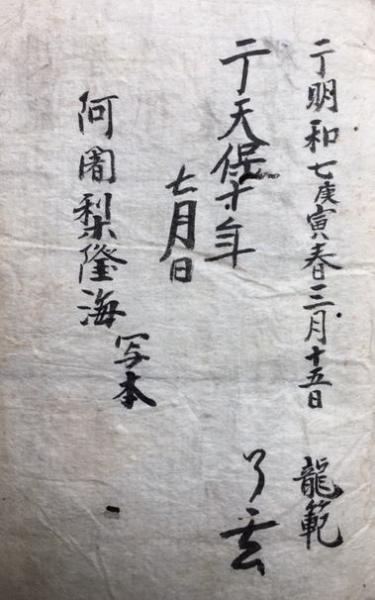 于明和七庚寅春三月十五日 龍範
于天保十年 了雲
七月日
阿闍梨隆海
写本